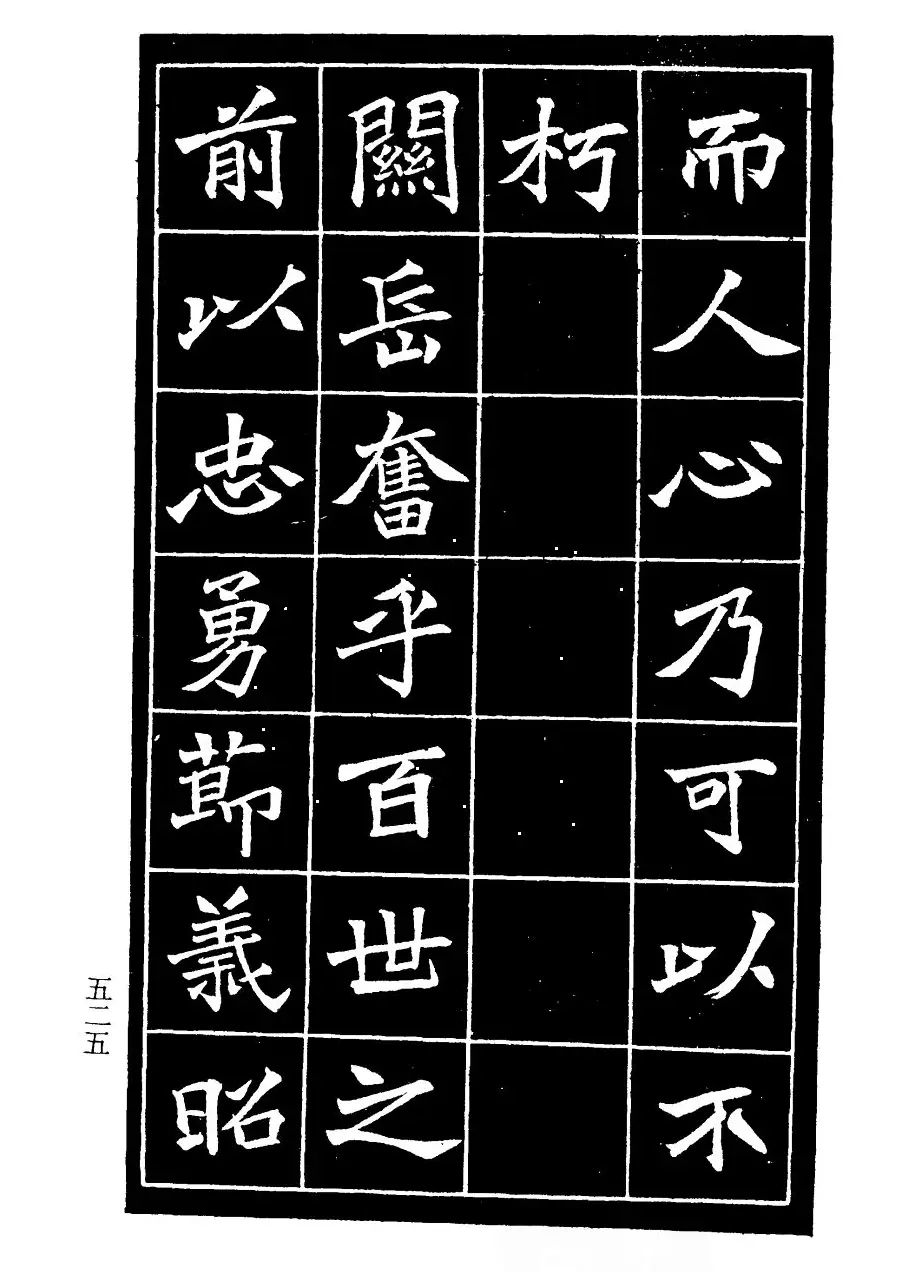 而人心乃可以不
朽
關岳奮乎百世之
前以忠勇節義昭
五二五